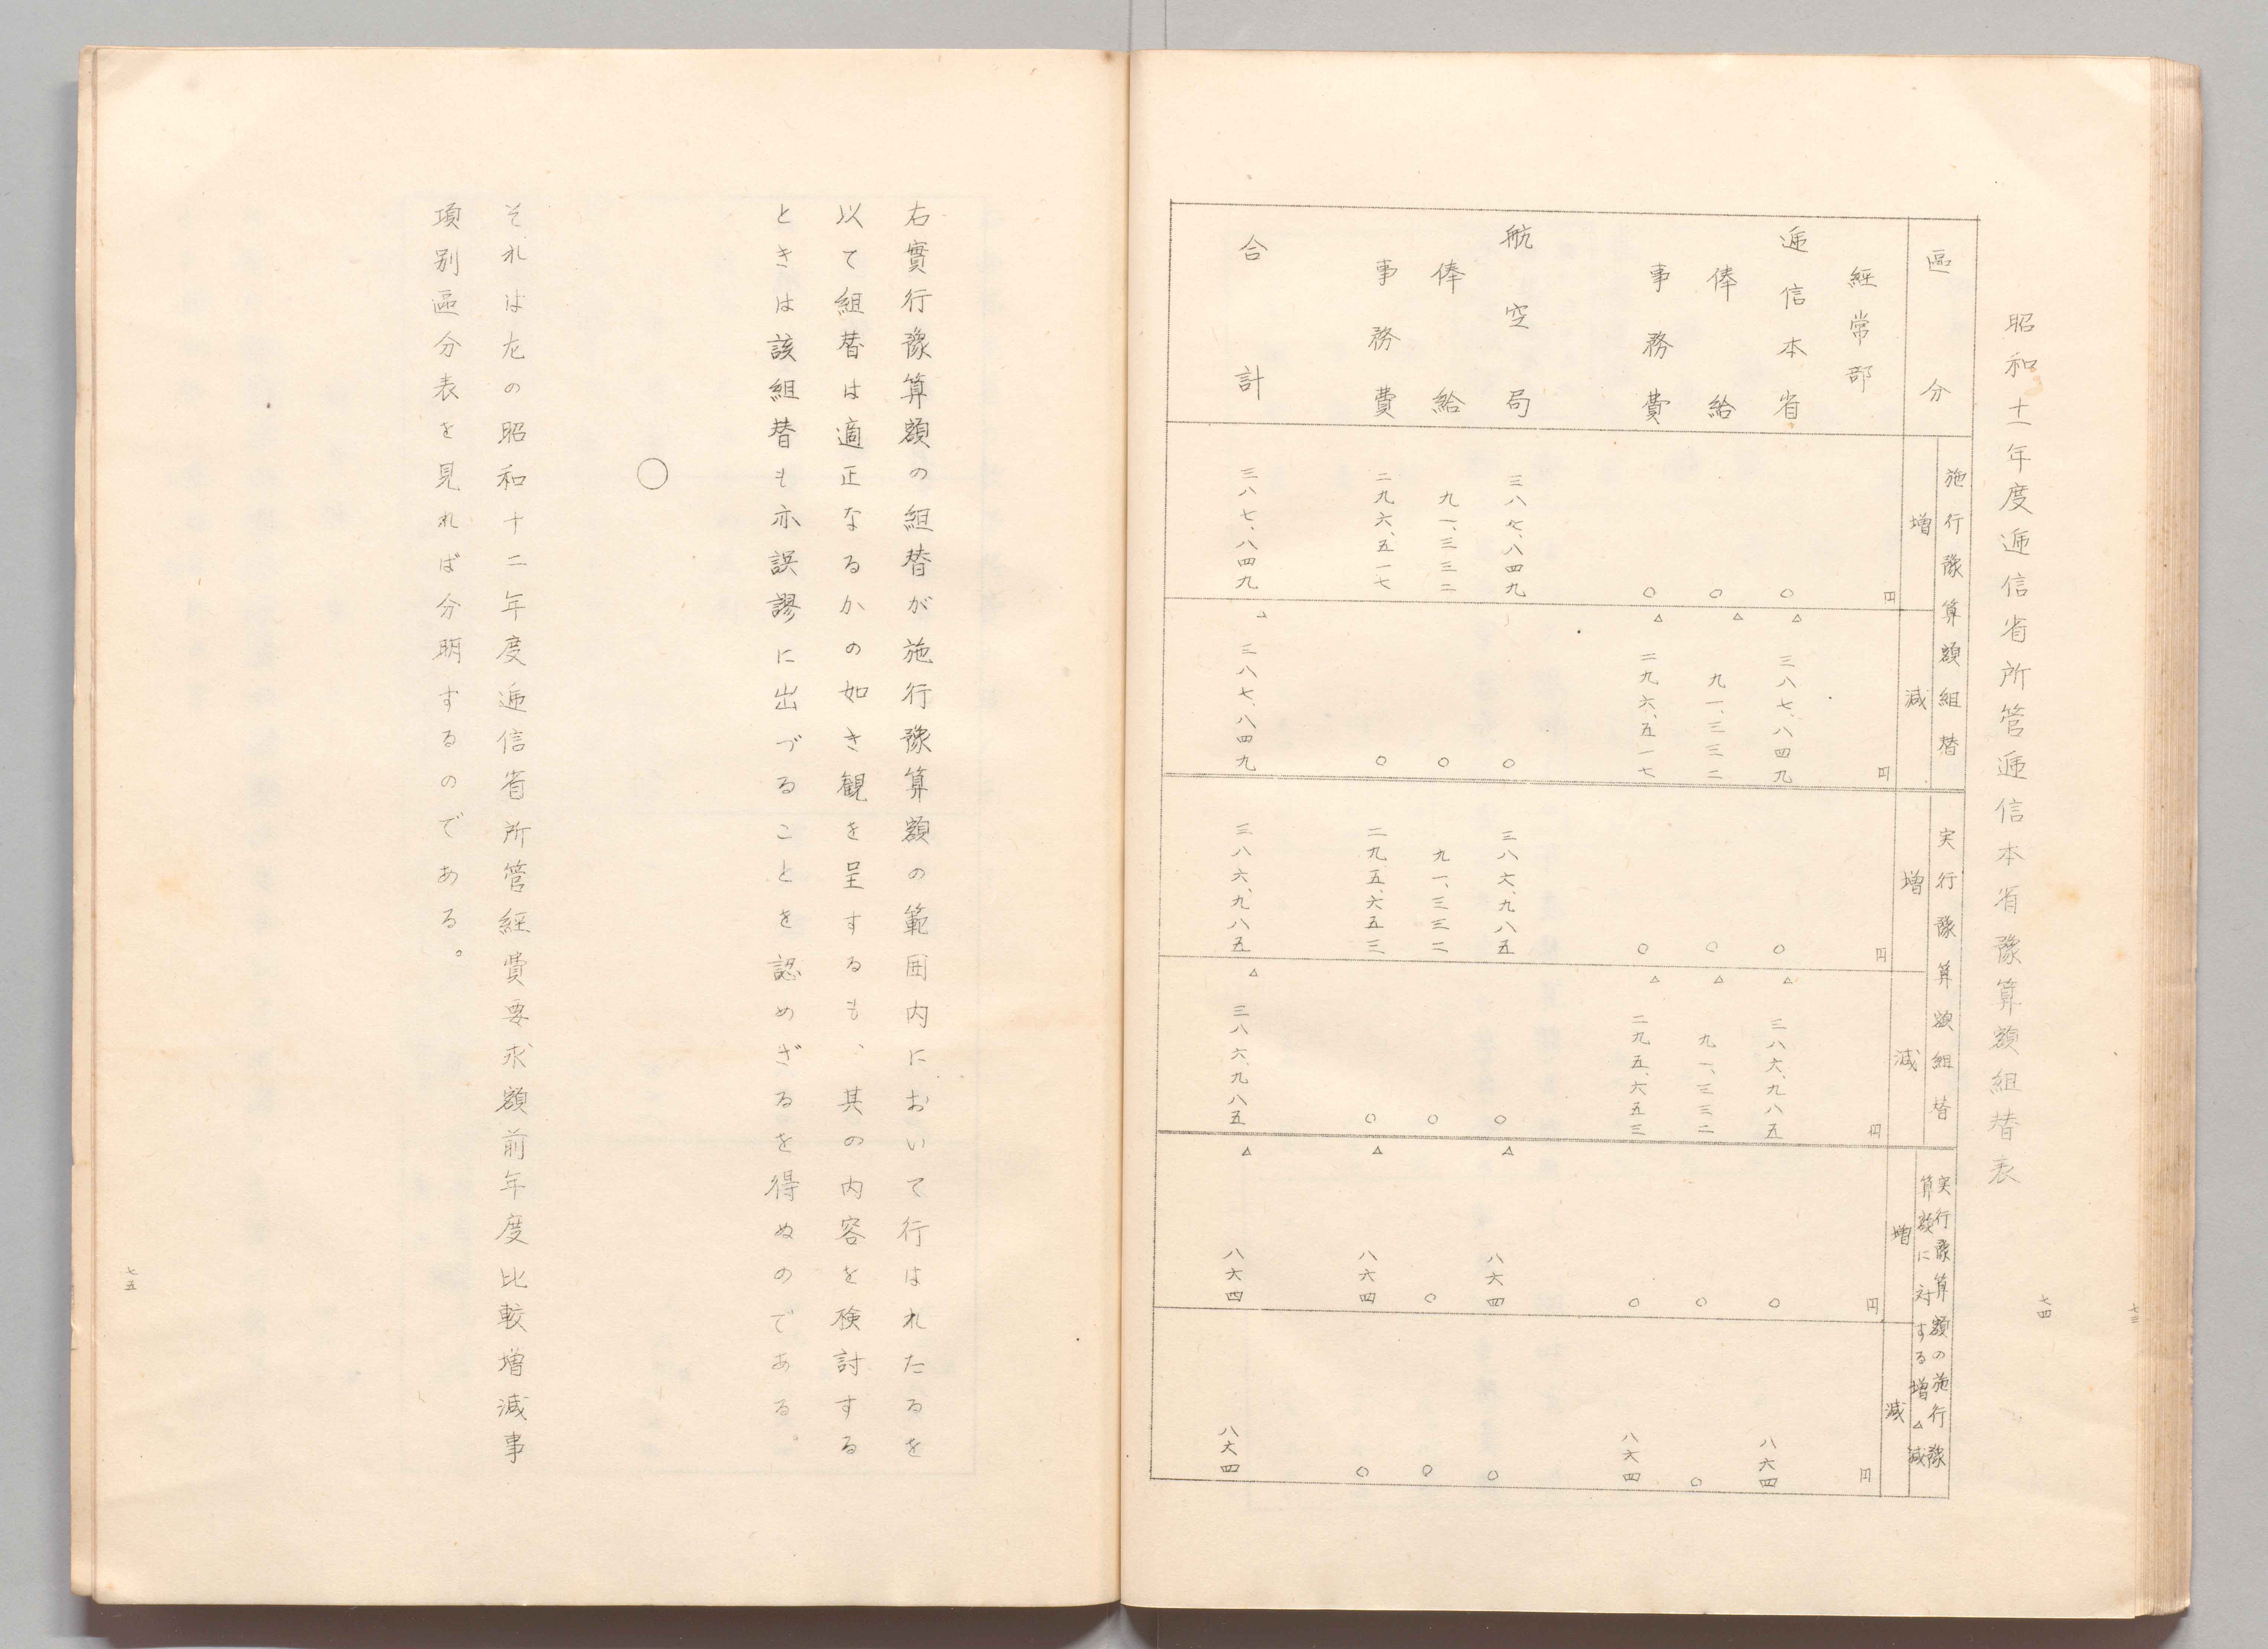 昭和十一年度逓信省所管逓信本省豫算額組替表
七四
區分
施行豫算額組替
増
減
実行豫算額組替
増
減
実行豫算額の施行豫
算額に対する増△減
増
減
經常部 円 円 円 円 円 円
逓信本省 〇 △三八七、八四九 〇 △三八六、九八五 〇 八六四
俸給 〇 △九一、三三二 〇 △九一、三三二 〇 〇
事務費 〇 △二九六、五一七 〇 △二九五、六五三 〇 八六四
航空局 三八七、八四九 〇 三八六、九八五 〇 △八六四 〇
俸給 九一、三三二 〇 九一、三三二 〇 〇 〇
事務費 二九六、五一七 〇 二九五、六五三 〇 △八六四 〇
合計 三八七、八四九 △三八七、八四九 三八六、九八五 △三八六、九八五 △八六四 八六四
右實行豫算額の組替が施行豫算額の範囲内において行はれたるを
以て組替は適正なるかの如き観を呈するも、其の内容を検討する
ときは該組替も亦誤謬に出づることを認めざるを得ぬのである。
〇
それは左の昭和十二年度逓信省所管経費要求額前年度比較増減事
項別區分表を見れば分明するのである。
七五